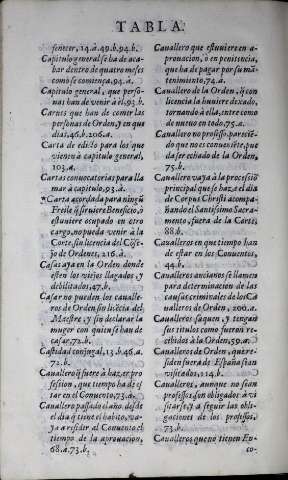 TABLA
fenecer, 14.à.49.b.94.b.
Capitulo general se ha de aca
bar dentro de quatro meses
como se comiença, 94.à.
Capitulo general, que perso
nas han de venir à èl, 93.b.
Carnes que han de comer las
personas de Orden, y en que
dias, 46.b. 206.a.
Carta de edicto para los que
vienen à capitulo general,
103.a.
Cartas convocatorias para lla
mar à capitulo, 93.à.
Carta acordada para ningũ
Freile q̃ sirviere Beneficio, ò
estuviere ocupado en otro
cargo, no pueda venir à la
Corte, sin licencia del Cõse-
jo de Ordenes, 216.à.
Casas aya en la Orden donde
esten los viejos llagados, y
debilitados, 47.b.
Casar no pueden los cavalle-
ros de Orden sin licẽcia del
Maestre, y sin declarar la
muger con quien se han de
casar, 72.b.
Castidad conjugal, 13.b. 46.a.
72.b.
Cavallero q̃ fuere à hazer pro
fession, que tiempo ha de es
tar en el Convento, 73.a.
Cavallero passado el año, desde
el dia q̃ tiene el habito, va-
ya à residir al Convento el
tiempo de la aprovacion,
68.à.73.b.
Cavallero que estuviere en a-
provacion, ò en penitencia,
que ha de pagar por su man
tenimiento, 74.à.
Cavallero de la Orden, q̃ con
licencia la huviere dexado,
tornando à ella, entre como
de nuevo en todo, 75.a.
Cavallero no professo, parecie
do que no es conveniẽte, pue
da ser echado de la Orden,
75.b.
Cavallero vaya à la processiõ
principal que se haze el dia
de Corpus Christi acompa-
ñando el Santissimo Sacra-
mento, fuera de la Corte,
88.b.
Cavalleros en que tiempo han
de estar en los Conventos,
44.b.
Cavalleros ancianos se llamen
para determinacion de las
causas criminales de los Ca
valleros de Orden, 200.a.
Cavalleros saquen, y tengan
sus titulos como fueron re-
cebidos à la Orden, 59.a.
Cavalleros de Orden, que re-
siden fuera de España sean
visitados, 114.b.
Cavalleros, aunque no sean
professos, son obligados à vi
sitarse, y à seguir las obli-
gaciones de los professos,
73.b.
Cavalleros que no tienen En-
co-